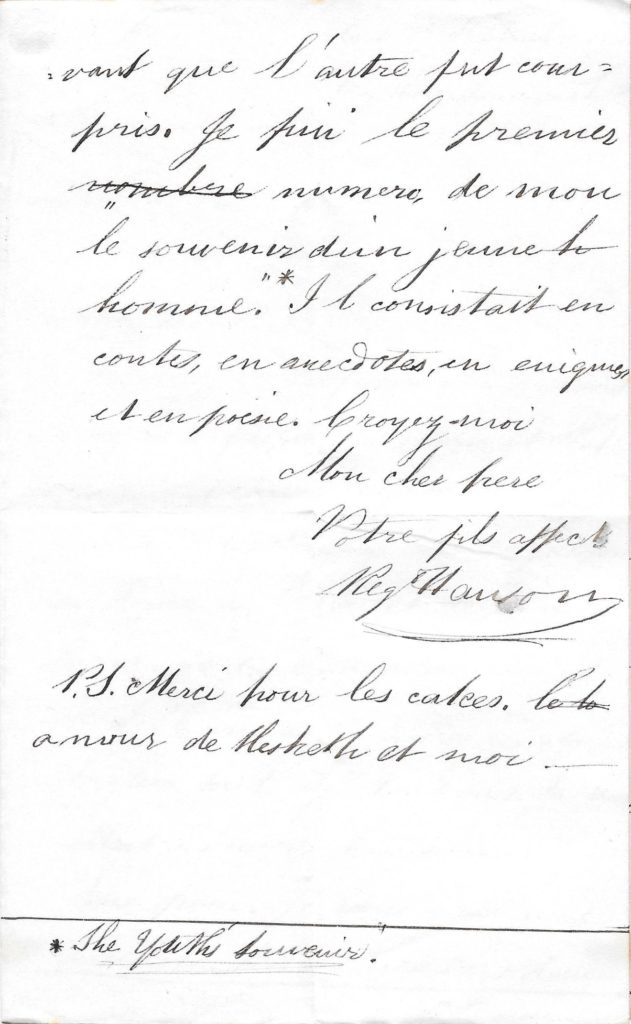 =vant que l'autre fut com=
pris. Je fini le premier
nombre numero, de mon
"le souvenir d'un jeune h
homme."* Il consistait en
contes, en anecdotes, en enigmes
et en poesie. Croyez-moi
Mon cher pere
Votre fils affect
Reg Hanson
P.S. Merci pour les cakes. le to
amour de Hesketh et moi.—
* The Youth's Souvenir".